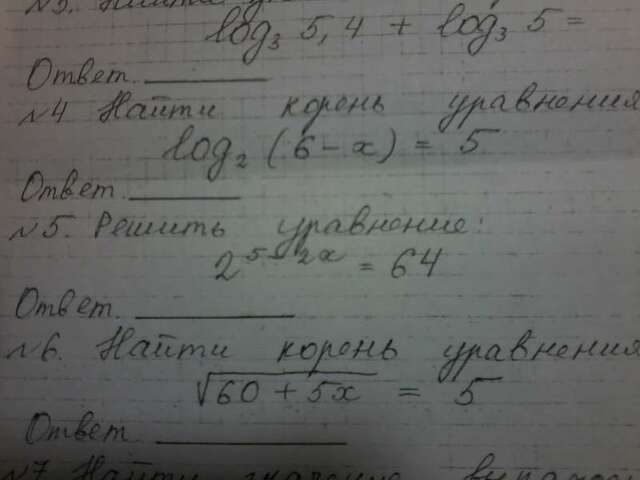 log₃ 5,4 + log₃ 5 =
Ответ. ________
№4 Найти корень уравнения
log₂ (6 - x) = 5
Ответ. ________
№5. Решить уравнение:
2^(5 - 2x) = 64
Ответ. ________
№6. Найти корень уравнения
√(60 + 5x) = 5
Ответ ________
№7 Найти